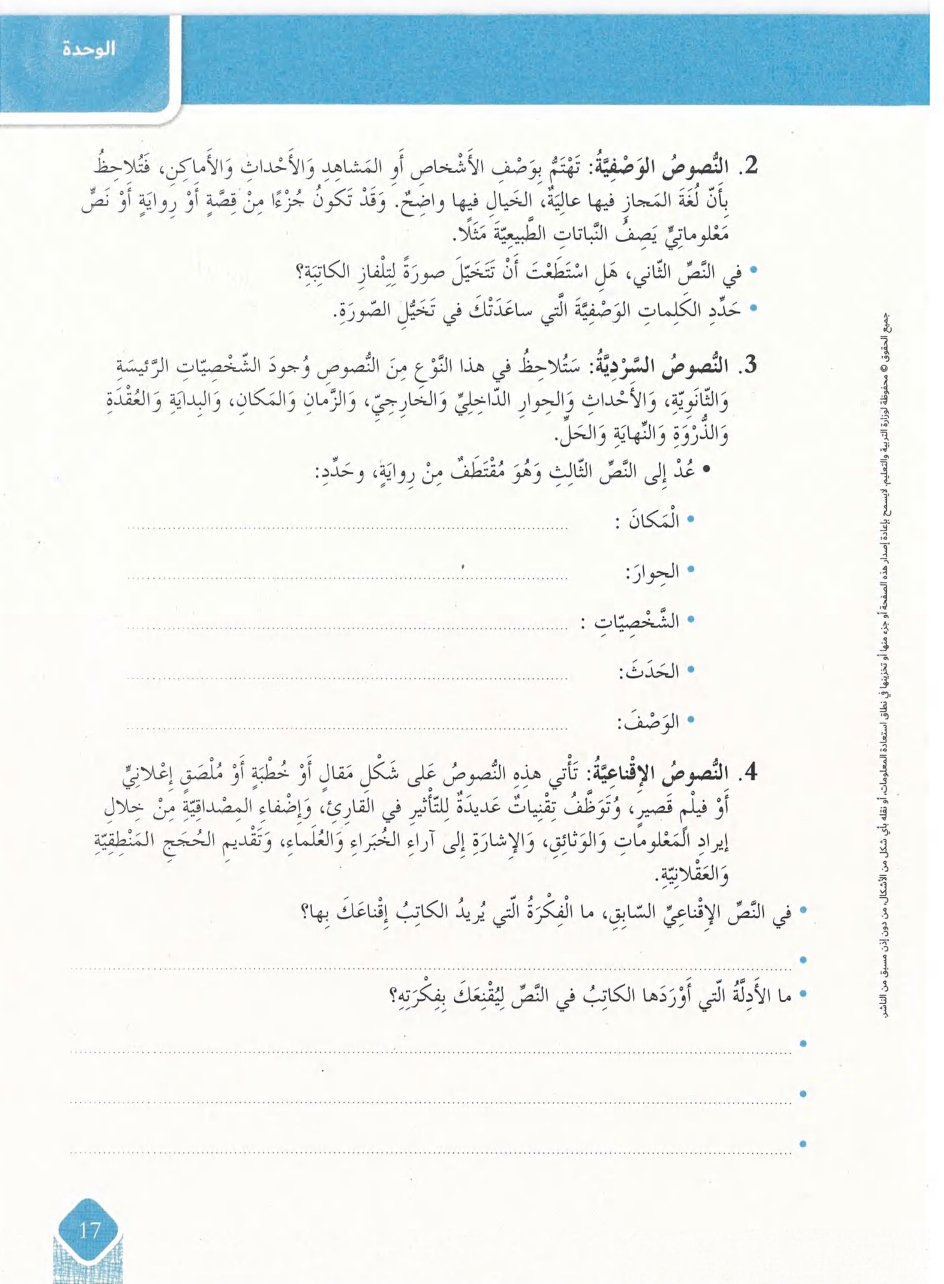 الوحدة
2. النُّصوصُ الوَصْفِيَّةُ: تَهْتَمُّ بِوَصْفِ الأَشْخاصِ أَوِ المَشاهِدِ وَالأَحْداثِ وَالأَماكِنِ، فَتُلاحِظُ
بِأَنّ لُغَةَ المَجازِ فيها عالِيَةٌ، الخَيالِ فيها واضِحٌ. وَقَدْ تَكونُ جُزْءًا مِنْ قِصَّةٍ أَوْ رِوايَةٍ أَوْ نَصٍّ
مَعْلوماتِيٍّ يَصِفُ النَّباتاتِ الطَّبيعِيّةَ مَثَلًا.
• في النَّصِّ الثّاني، هَلِ اسْتَطَعْتَ أَنْ تَتَخَيّلَ صورَةً لِتِلْفازِ الكاتِبَةِ؟
• حَدِّدِ الكَلِماتِ الوَصْفِيَّةَ الَّتي ساعَدَتْكَ في تَخَيُّلِ الصّورَةِ.
3. النُّصوصُ السَّرْدِيَّةُ: سَتُلاحِظُ في هذا النَّوْعِ مِنَ النُّصوصِ وُجودَ الشَّخْصِيّاتِ الرَّئيسَةِ
وَالثّانَوِيّةِ، وَالأَحْداثِ وَالحِوارِ الدّاخِلِيِّ وَالخارِجِيّ، وَالزَّمانِ وَالمَكانِ، وَالبِدايَةِ وَالعُقْدَةِ
وَالذُّرْوَةِ وَالنِّهايَةِ وَالحَلِّ.
• عُدْ إِلى النَّصِّ الثّالِثِ وَهُوَ مُقْتَطَفٌ مِنْ رِوايَةٍ، وحَدِّدِ:
• الْمَكانَ :
• الحِوارَ:
• الشَّخْصِيّاتِ :
• الحَدَثَ:
• الوَصْفَ:
4. النُّصوصُ الإِقْناعِيَّةُ: تَأْتي هذِهِ النُّصوصُ عَلى شَكْلِ مَقالٍ أَوْ خُطْبَةٍ أَوْ مُلْصَقٍ إِعْلانِيٍّ
أَوْ فيلْمٍ قَصيرٍ، وُتَوَظَّفُ تِقْنِياتٌ عَديدَةٌ لِلتَّأْثيرِ في القارِئِ، وَإِضْفاءِ المِصْداقِيّةِ مِنْ خِلالِ
إيرادِ الْمَعْلوماتِ وَالوَثائِقِ، وَالإِشارَةِ إِلى آراءِ الخُبَراءِ وَالعُلَماءِ، وَتَقْديمِ الحُجَجِ المَنْطِقِيّةِ
وَالعَقْلانِيّةِ.
• في النَّصِّ الإِقْناعِيِّ السّابِقِ، ما الْفِكْرَةُ الّتي يُريدُ الكاتِبُ إِقْناعَكَ بِها؟
• ما الأَدِلَّةُ الّتي أَوْرَدَها الكاتِبُ في النَّصِّ لِيُقْنِعَكَ بِفِكْرَتِهِ؟
جميع الحقوق © محفوظة لوزارة التربية والتعليم. لايسمح بإعادة إصدار هذه الصفحة أو جزء منها أو تخزينها في نطاق استعادة المعلومات، أو نقله بأي شكل من الأشكال، من دون إذن مسبق من الناشر.
17